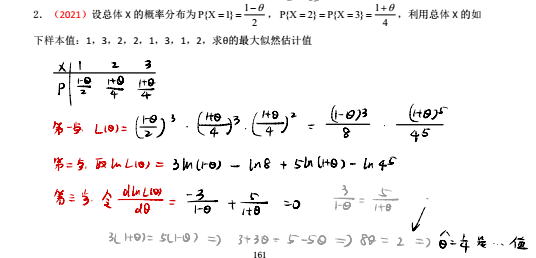 2. (2021) 设总体 X 的概率分布为 P{X=1}=(1-θ)/2, P{X=2}=P{X=3}=(1+θ)/4, 利用总体 X 的如
下样本值: 1, 3, 2, 2, 1, 3, 1, 2, 求θ的最大似然估计值
X 1 2 3
P (1-θ)/2 (1+θ)/4 (1+θ)/4
第一步 L(θ)=((1-θ)/2)^3 · ((1+θ)/4)^3 · ((1+θ)/4)^2 = (1-θ)^3/8 · (1+θ)^5/4^5
第二步 取 ln L(θ) = 3ln(1-θ) - ln8 + 5ln(1+θ) - ln4^5
第三步 令 dlnL(θ)/dθ = -3/(1-θ) + 5/(1+θ) =0 3/(1-θ) = 5/(1+θ)
3(1+θ)=5(1-θ) => 3+3θ=5-5θ => 8θ=2 => θ̂=1/4 是…值
161